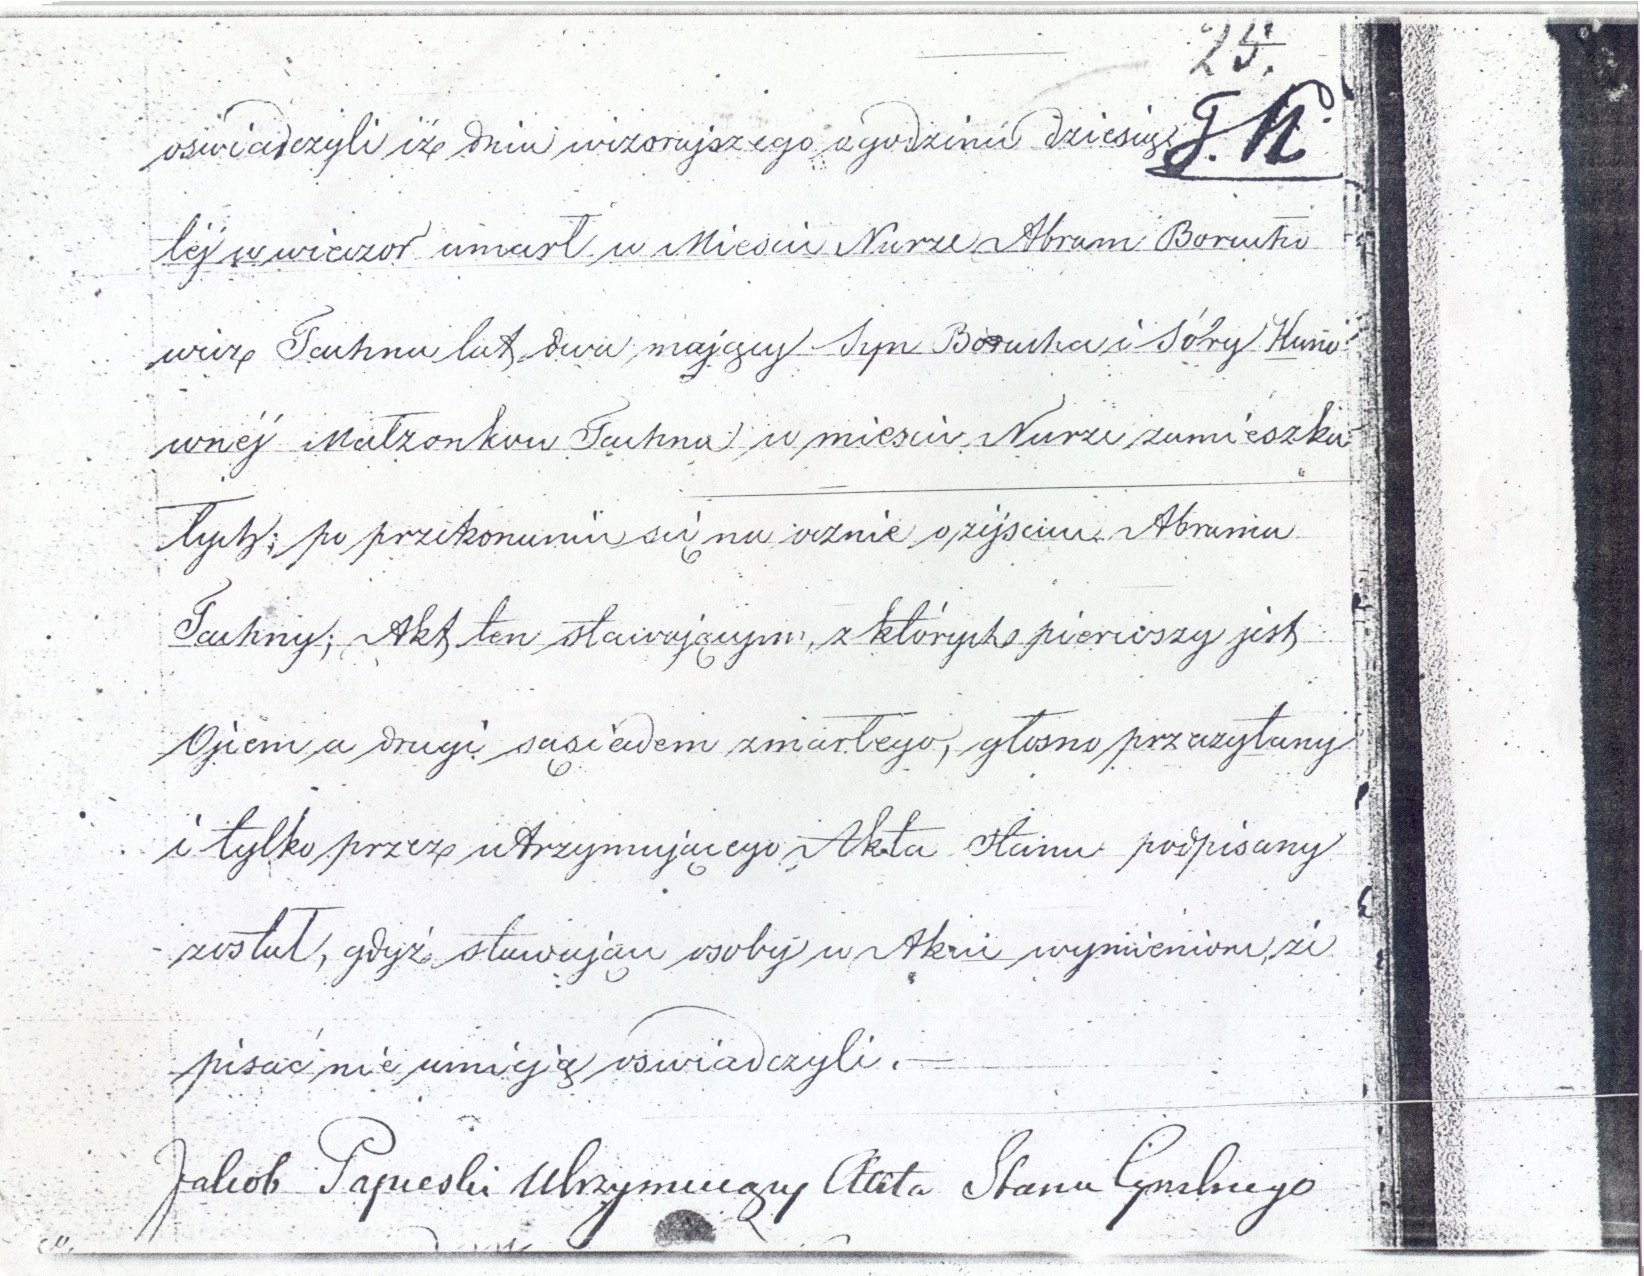 25.
J. K.
oświadczyli iż dnia wizorajszego o godzinie dziesią
téj w wieczor umarł w Miescie Nurze Abram Borucho
wicz Tachna lat dwa mający Syn Borucha i Sóry Huno
wnéj Małżonków Tachna w miescie Nurze zamieszka
łych; po przekonaniu się na ocznie o zejściu Abrama
Tachny; Akt ten stawającym, z których pierwszy jest
Ojcem a drugi sąsiadem zmarłego, głosno przeczytany
i tylko przez utrzymującego Akta stanu podpisany
został, gdyż stawające osoby w Akcie wymienione, że
pisać nie umieją oswiadczyli.
Jakob Papieski Utrzymuiący Akta Stanu Cywilnego